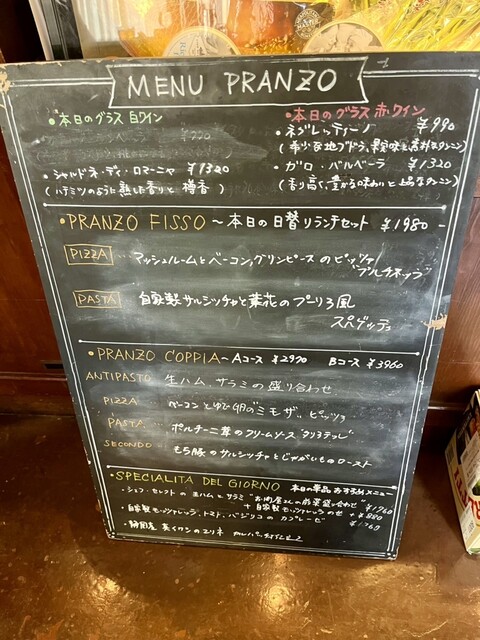 MENU PRANZO
・本日のグラス 白ワイン
・シャルドネ・ディ・ロマーニャ ¥1320
(ハチミツのように熟した香りと 樽香)
・本日のグラス 赤ワイン
・ネグレッティーノ ¥990
・ガロ・バルベーラ ¥1320
(香り高く、豊かな味わいと上品なタンニン)
・PRANZO FISSO ～本日の日替りランチセット ¥1980-
PIZZA … マッシュルームとベーコン,グリンピース のピッツァ
"プルチネッラ"
PASTA … 自家製サルシッチャと菜花のプーリア風
スパゲッティ
・PRANZO COPPIA～Aコース ¥2970 Bコース ¥3960
ANTIPASTO 生ハム、サラミの盛り合わせ
PIZZA ベーコンとゆで卵の"ミモザ"ピッツァ
PASTA ポルチーニ茸のクリームソース
SECONDO もち豚のサルシッチャとじゃがいものロースト
・SPECIALITA DEL GIORNO 本日の単品おすすめメニュー
・シェフ・セレクトの 生ハムとサラミ "お肉屋さんの前菜盛り合わせ" ¥1760
+ 自家製モッツァレッラのせ +¥880
・自家製モッツァレッラ、トマト、バジリコの カプレーゼ ¥1760
・静岡産